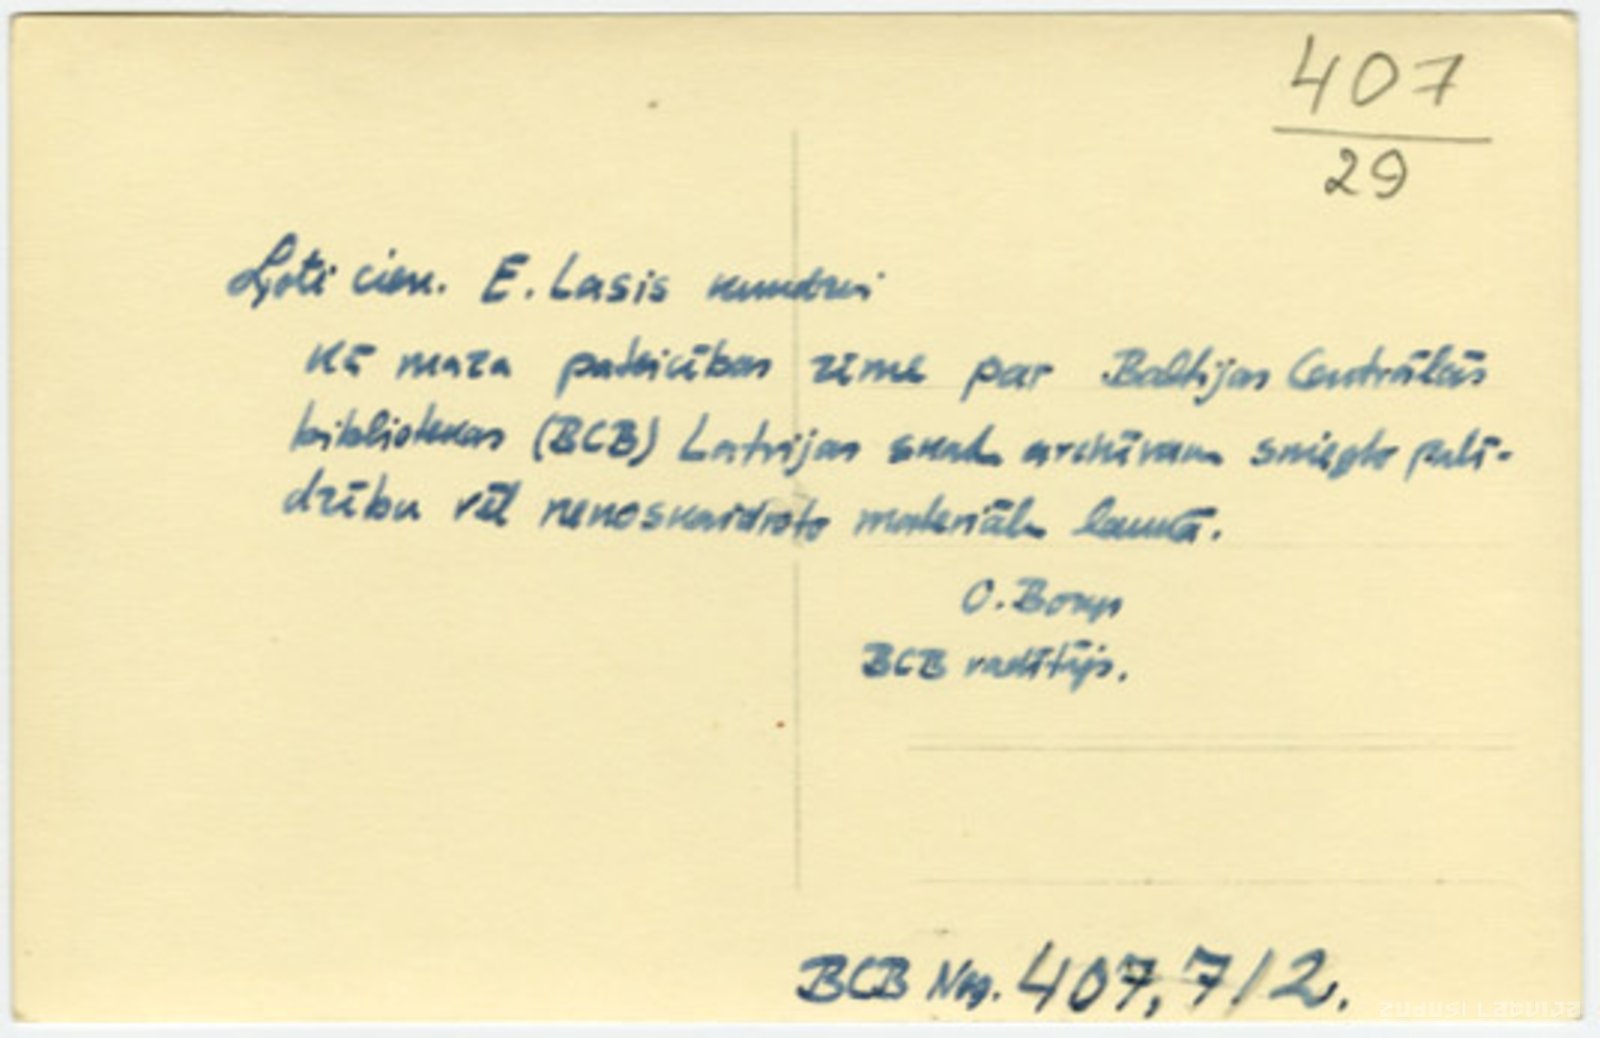 407
29
Ļoti cien. E. Lasis kundzei
Kā maza pateicības zīme par Baltijas Centrālās
bibliotekas (BCB) Latvijas skatu archīvam sniegto palī-
dzību vēl nenoskaidroto materiālu laukā.
O. Bong
BCB vadītājs.
BCB Neg. 407,7/2.
Zudusi Latvija